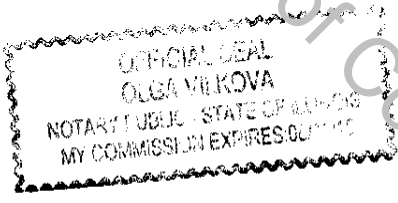 OFFICIAL SEAL
OLGA VILKOVA
NOTARY PUBLIC - STATE OF ILLINOIS
MY COMMISSION EXPIRES
of Co